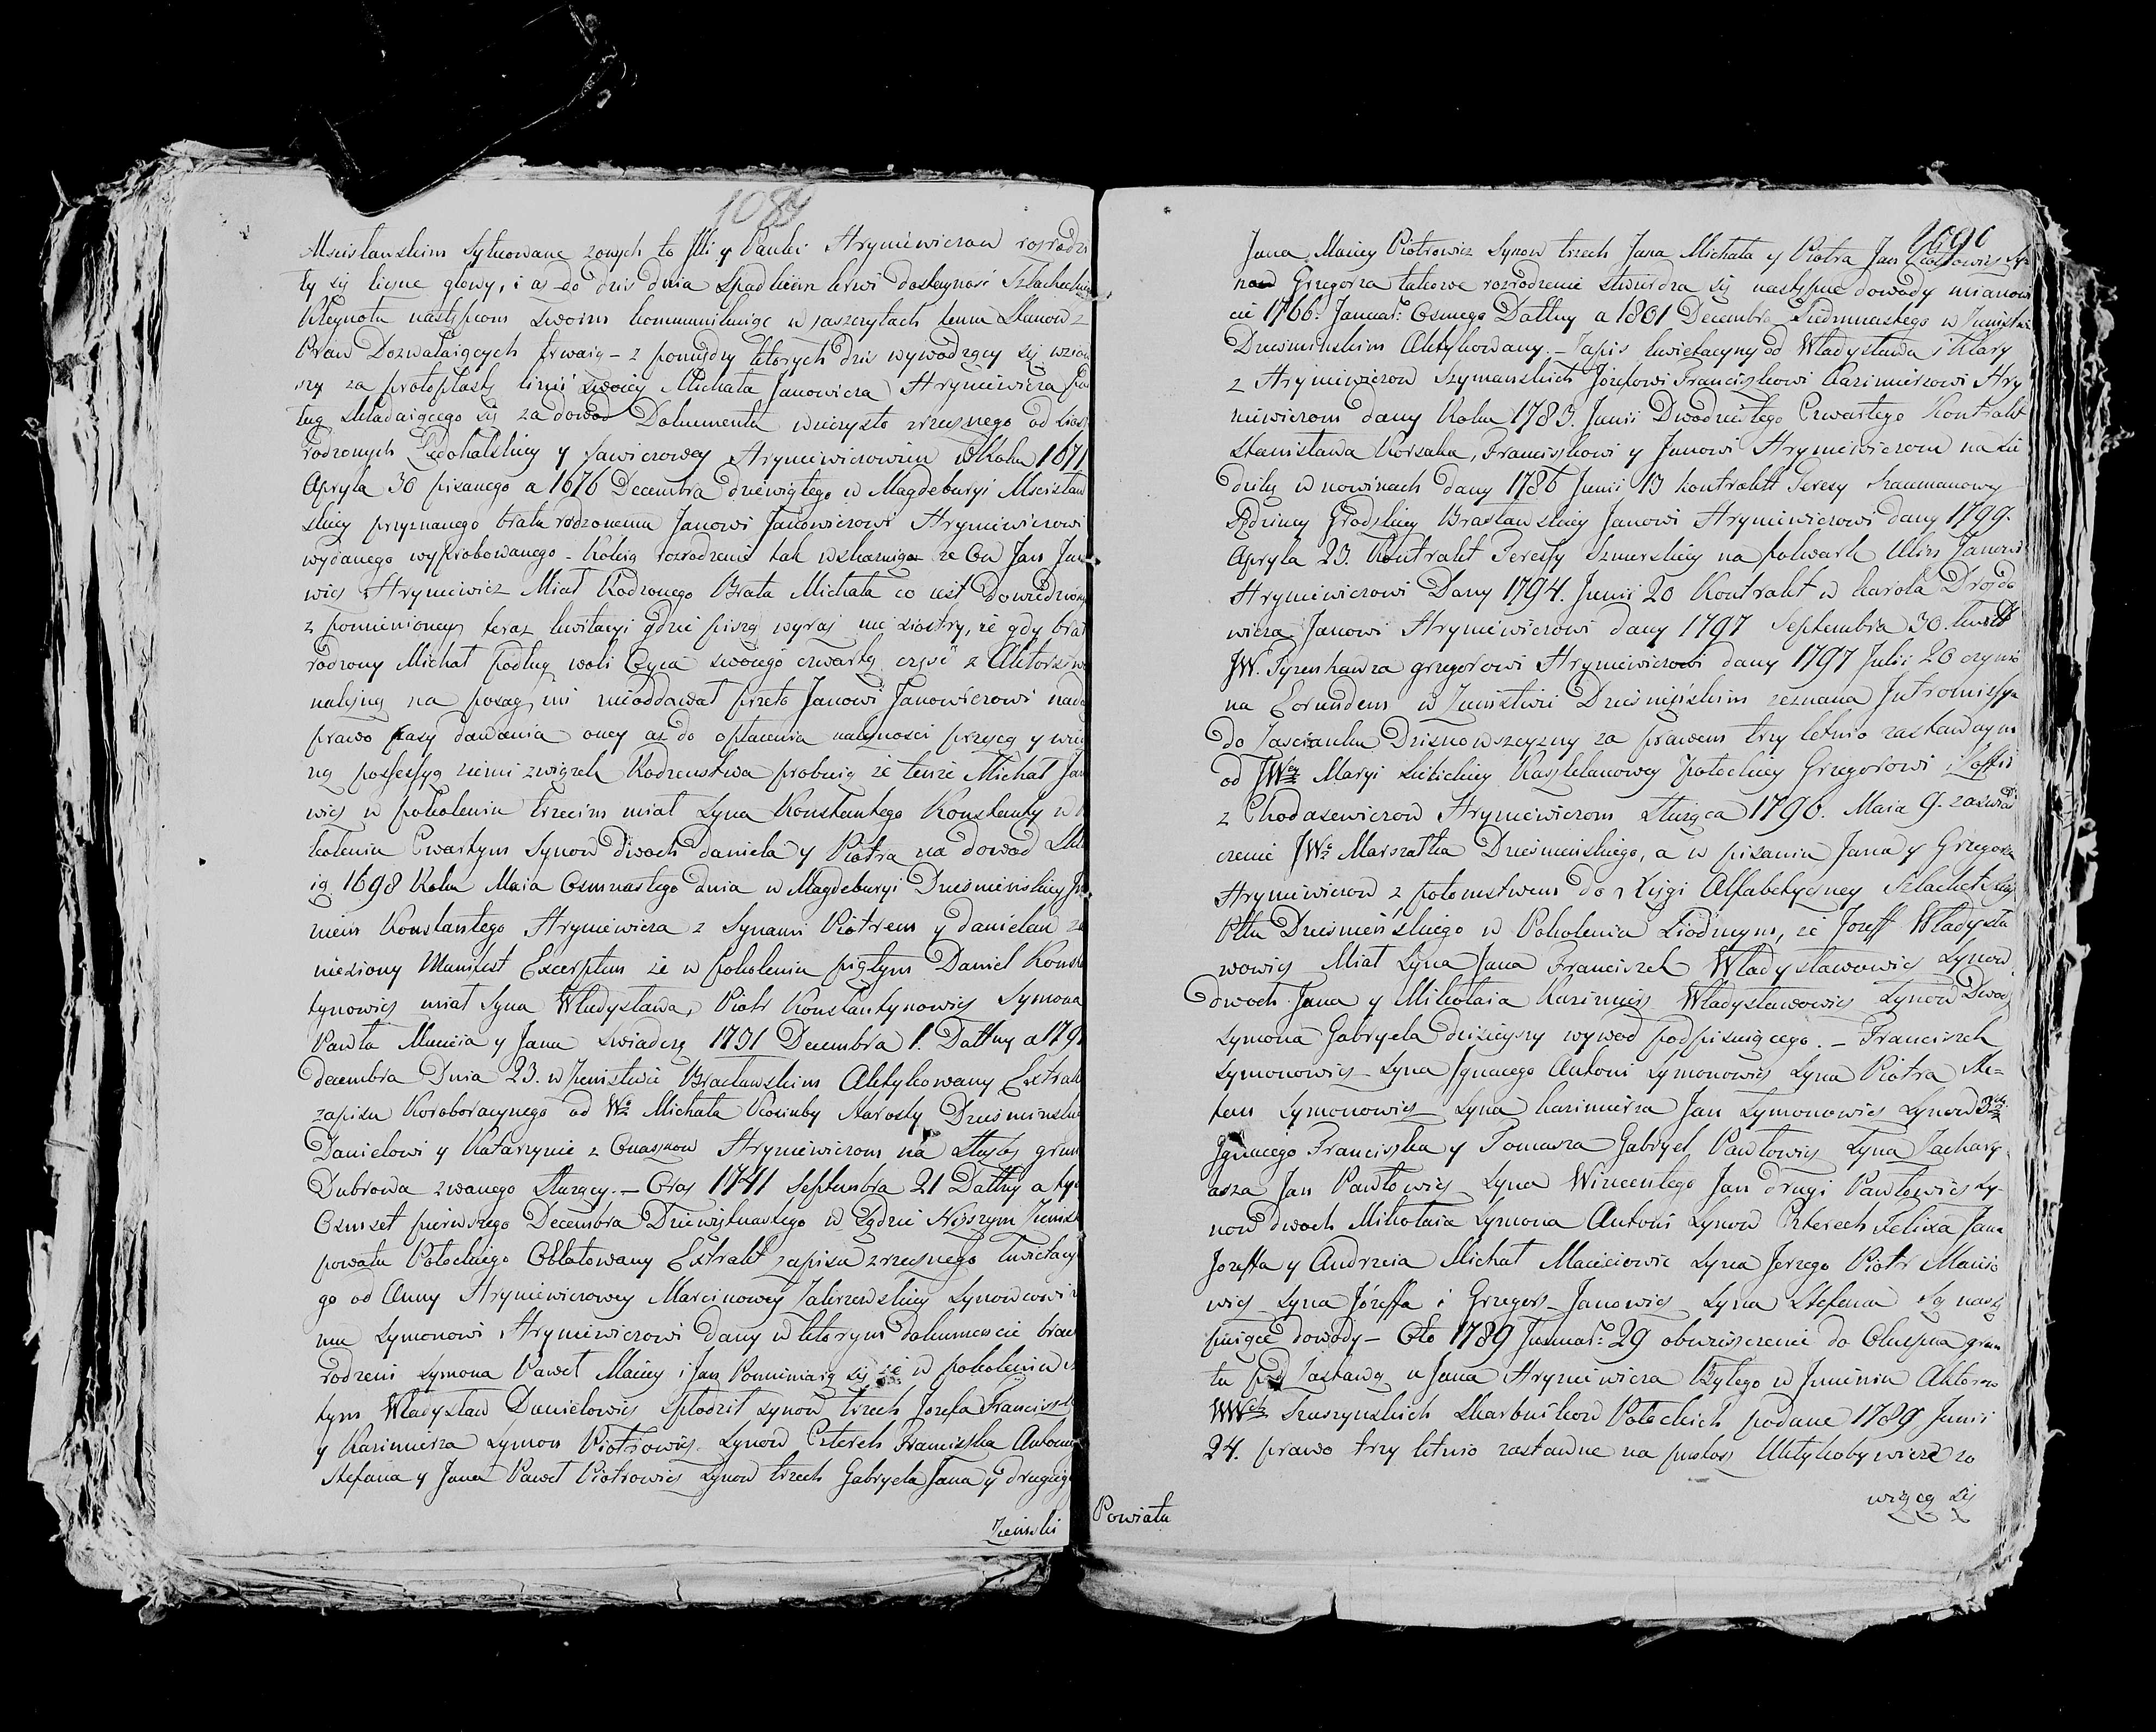 1089
Mscisławskim Sytuowane zonych to Illi y Pawła Hryniewiczow rozrodzi
ły się liczne głowy, i aż do dziś dnia Spadkiem krwi dostoyność Szlachectwa
Kleynotu następcom swoim kommunikuiąc w zaszczytach temu Stanowi z
Praw Dozwalaiących trwaią – z pomiędzy których dziś wywodzący się wziow
szy za protoplastę linii swoiey Michała Janowicza Hryniewicza po
ług składaiącego się za dowod Dokumentu wieczysto zrzecznego od siostr
rodzonych y Sawiczowey Hryniewiczowien w Roku 1671
Apryla 30 pisanego a 1676 Decembra dziewiątego w Magdeburyi Mscisław
skiey przyznanego bratu rodzonemu Janowi Janowiczowi Hryniewiczowi
wydanego wyprobowanego – Koleią rozrodzenie tak wskazuią że On Jan Jano
wicz Hryniewicz Miał Rodzonego Brata Michała co iest dowiedziono
z pomienioney teraz kwitacyi gdzie piszą wyraz nie siostry, że gdy brat
rodzony Michał podług woli Oyca swoiego czwartą część z Aktorstwa
należną na posag im nieoddawał przeto Janowi Janowiczowi nadaią
prawo pasy dawania oney aż do opłacenia należności przeyęcą y wiecz
ną possessyą niemi związek Rodzenstwa probuią że tenże Michał Jano
wicz w pokoleniu trzecim miał Syna Konstantego Konstanty w po
koleniu Czwartym Synow dwoch daniela y Piotra na dowod Skła
ią 1698 Roku Maia Osmnastego dnia w Magdeburyi Dziesnienskiey Im
niem Konstantego Hryniewicza z Synami Piotrem y danielem za
niesiony Manifest Excerptem że w pokoleniu piątym Daniel Konstan
tynowicz miał Syna Władysława, Piotr Konstantynowicz Symona
Pawła Macieia y Jana Swiadczą 1731 Decembra 1. Dattny a 179
decembra Dnia 23. w Ziemstwie Bracławskim Aktykowany Extrakt
zapisu Koroboracyinego od Wo Michała Kociuby Starosty Dziesnienskie
Danielowi y Katarzynie z Hryniewiczom na Służbę grunt
Dubrowa zwanego Służący. – Oraz 1741 Septembra 21 Dattny a tys
Osmset pierwszego Decembra Dziewiętnastego w Sądzie Niższym Ziemsk
powiatu Połockiego Oblatowany Extrakt zapisu zrzecznego kwietacy
go od Anny Hryniewiczowey Marcinowey Zakrzewskiey Synowcowi
mu Symonowi Hryniewiczowi dany w ktorym dokumencie bracia
rodzeni Symona Paweł Maciey i Jan Pomieniaią się że w pokoleniu s
tym Władysław Danielowicz Spłodził synow trzech Jozefa Franciszk
y Kazimierza Symon Piotrowicz Synow Czterech Franciszka Antonie
Stefana y Jana Paweł Piotrowicz Synow trzech Gabryela Jana y drugieg
Ziemski
1090
Jana Maciey Piotrowicz Synow trzech Jana Michała y Piotra Jan Piotrowicz Sy
now Grzegorza takowe rozrodzenie stwierdza się następne dowody mianowi
cie 1766. Januar: Osmego Dattny a 1801 Decembra Siedmnastego w Ziemstwie
Dziesnienskim Aktykowany – Zapis kwietacyiny od Władysława i Klary
z Hryniewiczow Szymanskich Józefowi Franciszkowi Kazimierzowi Hry
niewiczom dany Roku 1783. Junii Dwodziestego Czwartego Kontrakt
Stanisława Korsaka, Franciszkowi y Janowi Hryniewiczom na sie
dzibę w nowinach dany 1786 Junii 13 kontraktt Teresy Szaumanowey
Sędziney Grodzkiey Brasławskiey Janowi Hryniewiczowi dany 1799.
Apryla 23. Kontrakt Teressy Szmurskiey na folwark Ulin Janowi
Hryniewiczowi Dany 1794. Junii 20 Kontrakt w karola Drozdo
wicza Janowi Hryniewiczowi dany 1797 Septembra 30. kwitt
JW. Tyzenhauza grzegorzowi Hryniewiczowi dany 1797 Julii 20 czynio
na Eorundem w Ziemstwie Dziesnieńskim zeznana Intromissya
do Zascianku Dzisnowszczyzny za prawem trzy letnio zastawnym
od JWey Maryi Sielickiey Kasztelanowey Połockiey Grzegorzowi i Zoffii
z Chodasewiczow Hryniewiczom Służąca 1790. Maia 9. zaświad
czenie JWo Marszałka Dziesnienskiego, a w pisaniu Jana y Grzegorza
Hryniewiczow z potomstwem do Xięgi Alfabetyczney Szlacheckiey
Pttu Dziesnieńskiego w Pokoleniu Siódmym, że Jozeff Władysła
wowicz Miał Syna Jana Franciszek Władysławowicz Synow
dwoch Jana y Mikołaia Kazimierz Władysławowicz Synow Dwoch
Symona Gabryela dzisieyszy wywod podpisuiącego. – Franciszek
Symonowicz Syna Ignacego Antoni Symonowicz Syna Piotra Ste=
fan Symonowicz Syna kazimierza Jan Symonowicz Synow 3ch
Ignacego Franciszka y Tomasza Gabryel Pawłowicz Syna Zachary
asza Jan Pawłowicz Syna Wincentego Jan drugi Pawłowicz Sy-
now dwoch Mikołaia Symona Antoni Synow Czterech Felixa Jana
Jozeffa y Andrzeia Michał Macieiowic Syna Jerzego Piotr Macio
wicz Syna Józeffa i Grzegorz Janowicz Syna Stefana Są nastę
puiące dowody – Oto 1789 Januar: 29 obwieszczenie do Okupna grun
tu pod Zastawą u Jana Hryniewicza Byłego w Imieniu Aktorow
WWch Truszynskich Skarbnikow Połockich podane 1789 Junii
24. prawo trzy letnio zastawne na pustosz Uktykobywicze zo
wiącą się
Powiatu